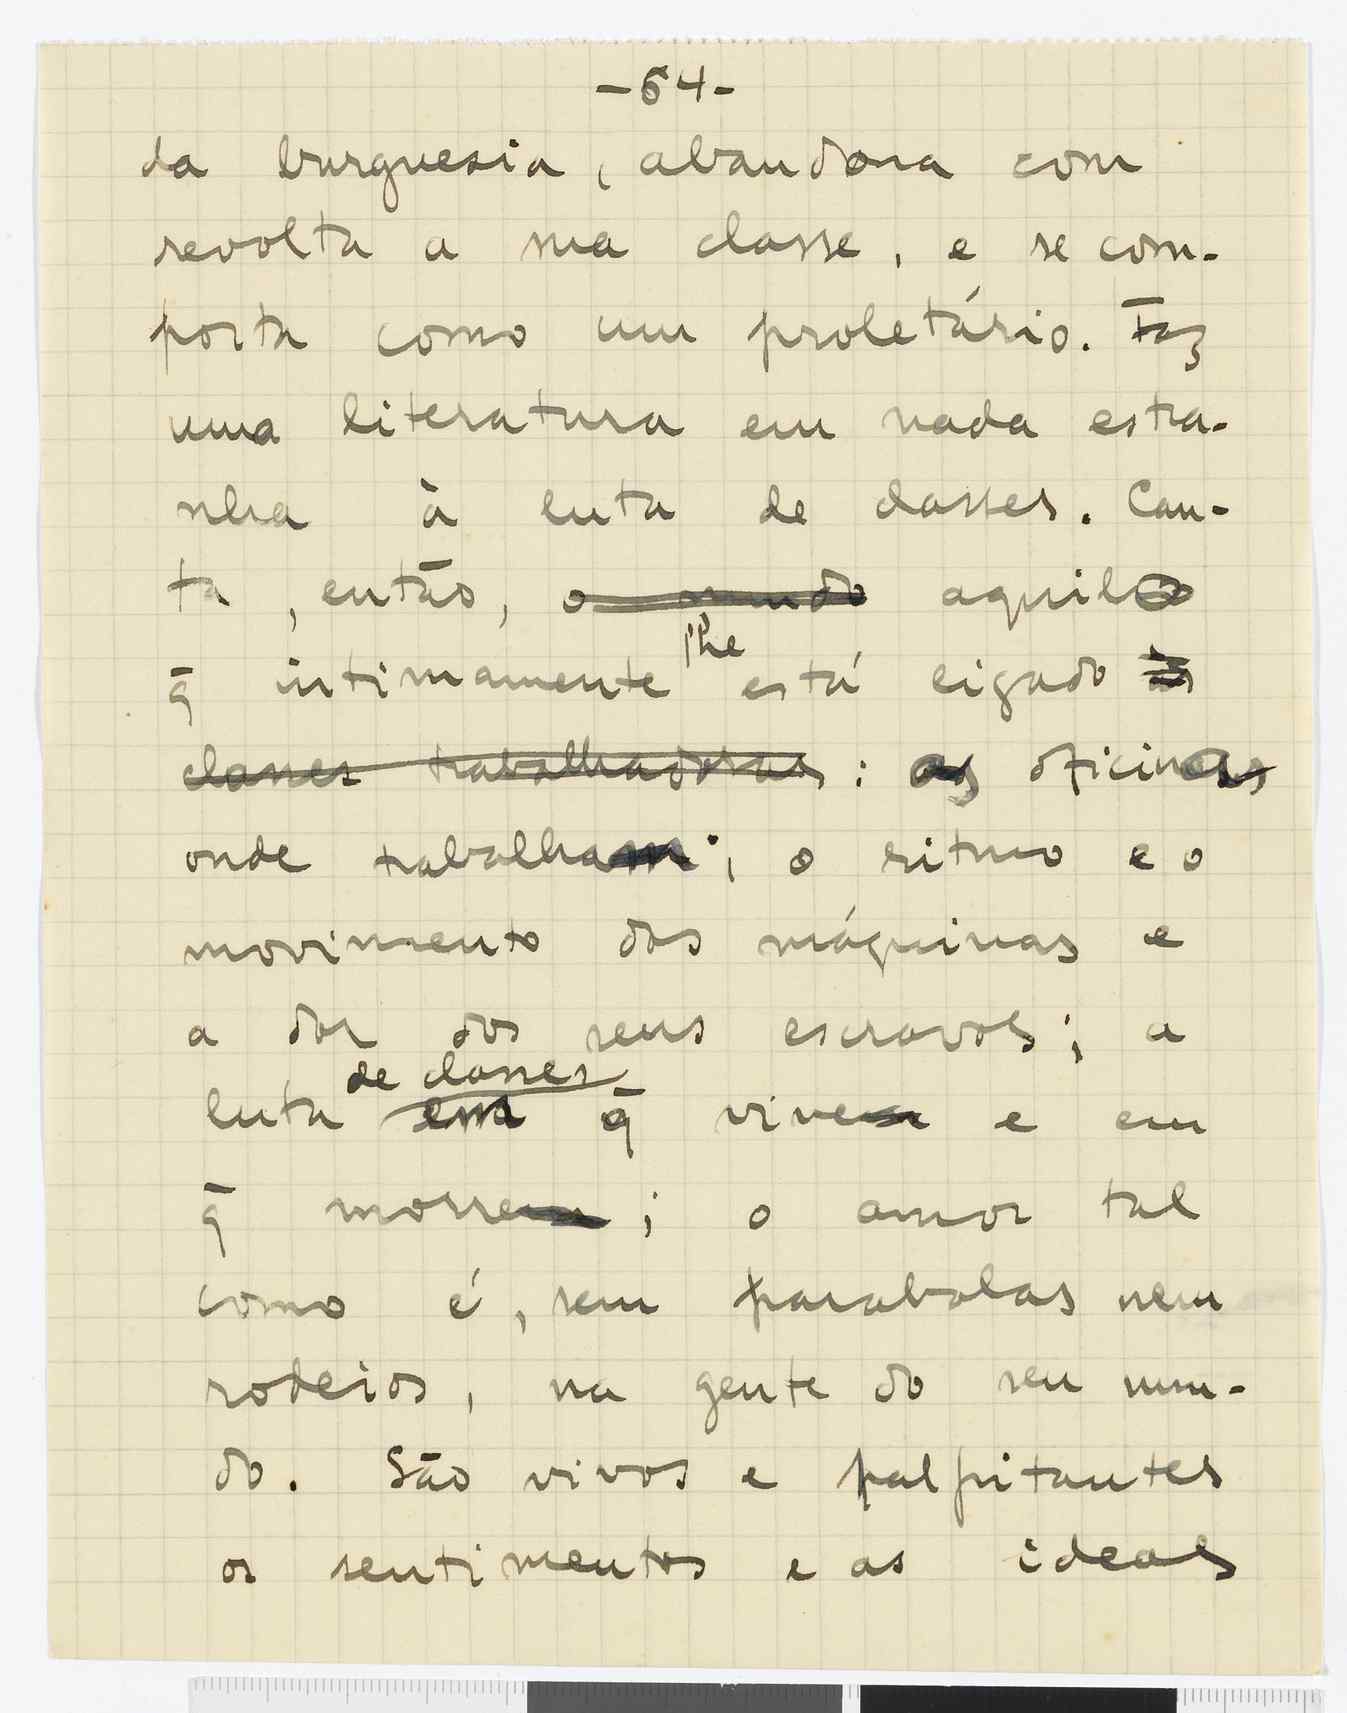 -64-
da burguesia, abandona com
revolta a sua classe, e se com-
porta como um proletário. Faz
uma literatura em nada estra-
nha à luta de classes. Can-
ta, então, o mundo aquilo
q̄ intimamente lhe está ligado às
classes trabalhadoras: as oficinas
onde trabalham; o ritmo e o
movimento das máquinas e
a dor dos seus escravos; a
luta de classes em q̄ vivem e em
q̄ morrem; o amor tal
como é, sem parabolas nem
rodeios, na gente do seu mun-
do. São vivos e palpitantes
os sentimentos e as ideas